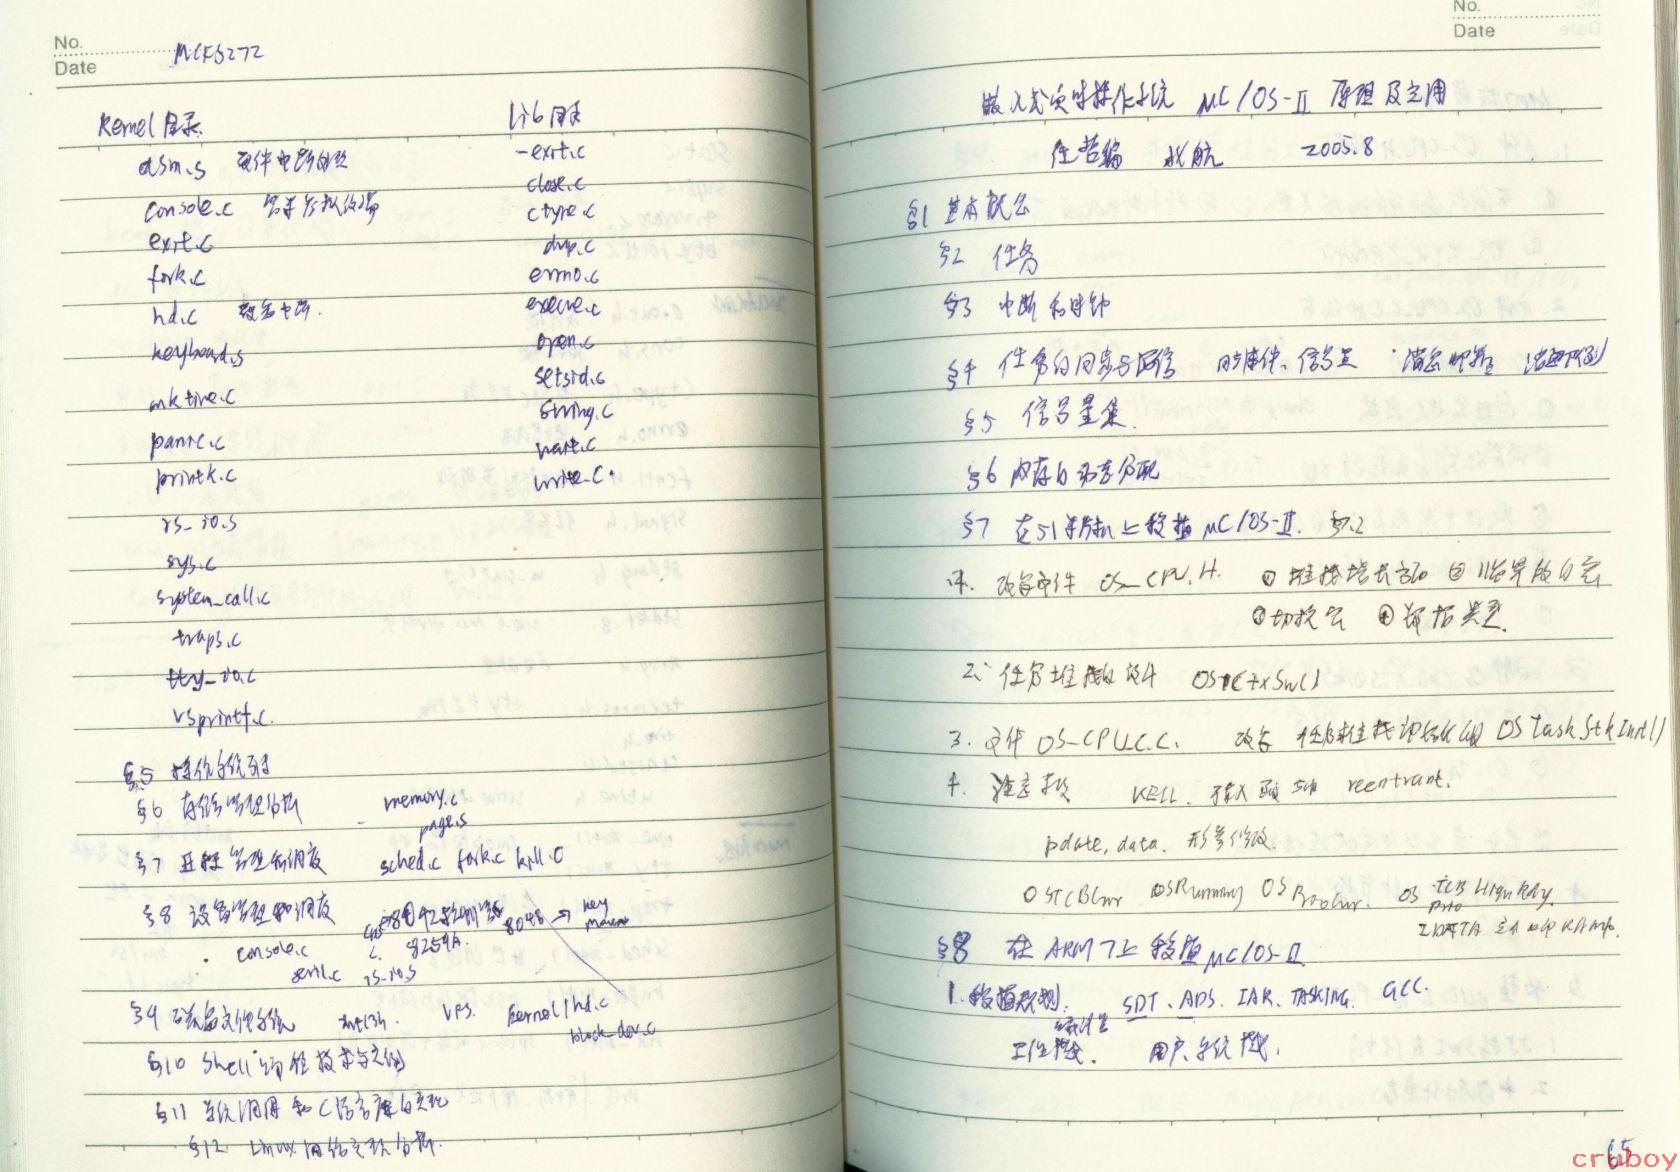 No.
Date
MCF5272
Kernel 目录
asm.s 硬件中断
console.c
exit.c
fork.c
hd.c
keyboard.s
mktime.c
panic.c
printk.c
rs_io.s
sys.c
system_call.c
traps.c
tty_io.c
vsprintf.c
Lib 目录
-exit.c
close.c
ctype.c
dup.c
errno.c
execve.c
open.c
setsid.c
string.c
wait.c
write.c
§5 操作系统
§6 存储管理分析 memory.c
page.s
§7 进程管理和调度 sched.c fork.c kill.c
§8 设备管理和调度 8042控制器 8048 → key
console.c 8259A.
rs_io.s
§9 文件系统 int13h. VFS. Kernel/hd.c
block_dev.c
§10 Shell 编程技术与实例
§11 系统调用和C语言库的实现
§12 Linux 网络实现分析.
No.
Date
嵌入式实时操作系统 μC/OS-II 原理及应用
任哲编 北航 2005.8
§1 基本概念
§2 任务
§3 中断和时钟
§4 任务的同步与通信 同步事件、信号量 消息邮箱 消息队列
§5 信号量集.
§6 内存的动态分配
§7 在51单片机上移植 μC/OS-II. §7.2
1. 改写文件 OS_CPU.H. ① 堆栈增长方向 ② 临界段的宏
③ 切换宏 ④ 数据类型.
2. 任务堆栈设计 OSCtxSw()
3. 文件 OS_CPU_C.C. 改写 任务堆栈初始化函数 OSTaskStkInit()
4. 注意事项 KEIL. 可重入函数 reentrant.
pdate, data. 形参修改.
OSTCBCur OSRunning OSPrioCur. OS TCB HighRdy.
Prio
IDATA RAM
§8 在ARM7上移植 μC/OS-II
1. 移植规划. SDT、ADS、IAR、TASKING. GCC.
工作模式. 用户、系统模式.
65
cruboy